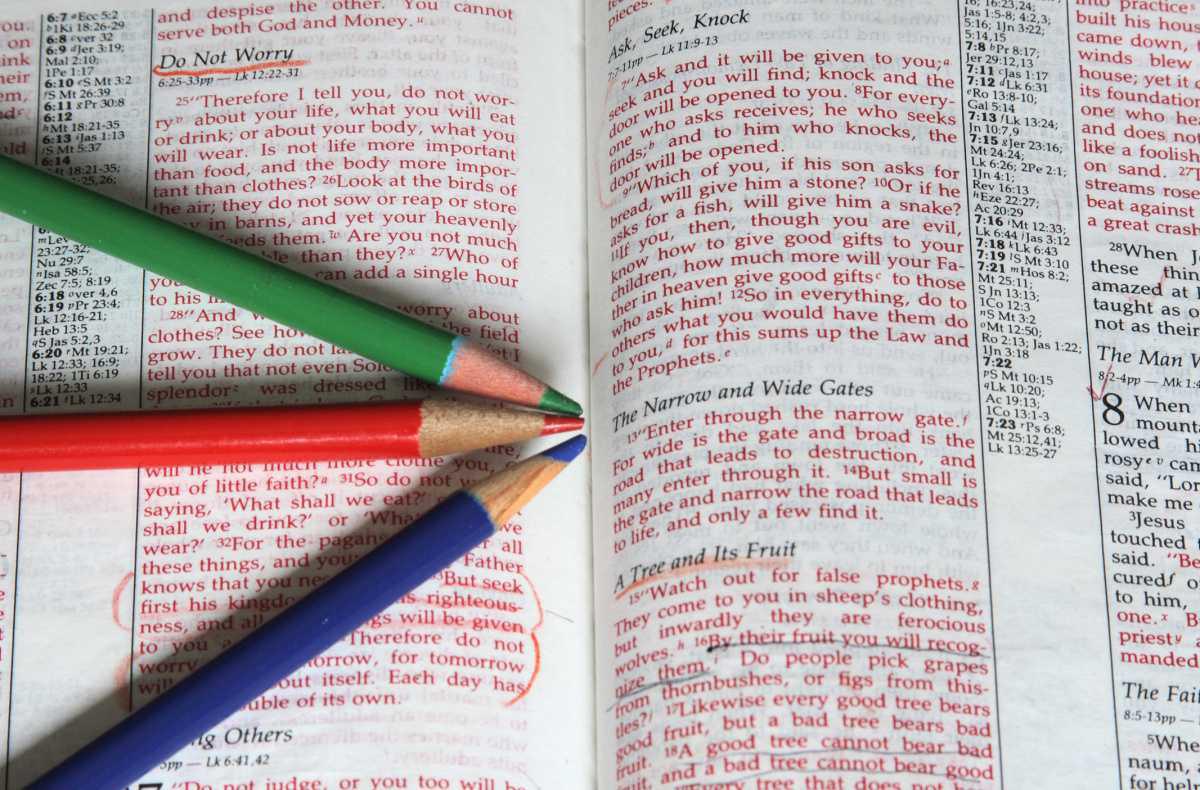 and despise the other. You cannot
serve both God and Money.
Do Not Worry
6:25-33pp — Lk 12:22-31
25"Therefore I tell you, do not wor-
ry about your life, what you will eat
or drink; or about your body, what you
will wear. Is not life more important
than food, and the body more impor-
tant than clothes? 26Look at the birds of
the air; they do not sow or reap or store
in barns, and yet your heavenly
them. Are you not much
than they? 27Who of
can add a single hour
to his
28"And worry about
clothes? See the field
grow. They do not
tell you that not even
splendor was dressed like
will he not much more clothe you,
you of little faith? 31So do not
saying, 'What shall we eat?'
shall we drink?' or we
wear?' 32For the pagans all
these things, and Father
knows that you But seek
first his righteous-
ness, and all will be given
to you Therefore do not
worry for tomorrow
itself. Each day has
of its own.
Others
Lk 6:41,42
"Do not judge, or you too will be
6:7 Ecc 5:2
1Ki 18:26-29
6:8 ver 32
6:9 Jer 3:19;
Mal 2:10;
1Pe 1:17
6:10 S Mt 3:2
S Mt 26:39
6:11 Pr 30:8
6:12
Mt 18:21-35
6:13 Jas 1:13
S Mt 5:37
6:14
Mt 18:21-35;
23:27-32;
Nu 29:7
Isa 58:5;
Zec 7:5; 8:19
6:18 ver 4,6
6:19 Pr 23:4;
Lk 12:16-21;
Heb 13:5
S Jas 5:2,3
6:20 Mt 19:21;
Lk 12:33; 16:9;
18:22; 1Ti 6:19
Lk 12:33
6:21 Lk 12:34
pieces.
Ask, Seek, Knock
7:7-11pp — Lk 11:9-13
7"Ask and it will be given to you;
seek and you will find; knock and the
door will be opened to you. 8For every-
one who asks receives; he who seeks
finds; and to him who knocks, the
door will be opened.
9"Which of you, if his son asks for
bread, will give him a stone? 10Or if he
asks for a fish, will give him a snake?
11If you, then, though you are evil,
know how to give good gifts to your
children, how much more will your Fa-
ther in heaven give good gifts to those
who ask him! 12So in everything, do to
others what you would have them do
to you, for this sums up the Law and
the Prophets.
The Narrow and Wide Gates
13"Enter through the narrow gate.
For wide is the gate and broad is the
road that leads to destruction, and
many enter through it. 14But small is
the gate and narrow the road that leads
to life, and only a few find it.
A Tree and Its Fruit
15"Watch out for false prophets.
They come to you in sheep's clothing,
but inwardly they are ferocious
wolves. 16By their fruit you will recog-
nize them. Do people pick grapes
from thornbushes, or figs from this-
tles? 17Likewise every good tree bears
good fruit, but a bad tree bears bad
fruit. 18A good tree cannot bear bad
fruit, and a bad tree cannot bear good
16; 16:23,24;
Jas 1:5-8; 4:2,3;
5:16; 1Jn 3:22;
5:14,15
7:8 Pr 8:17;
Jer 29:12,13
7:11 Jas 1:17
7:12 Lk 6:31
Ro 13:8-10;
Gal 5:14
7:13 Lk 13:24;
Jn 10:7,9
7:15 Jer 23:16;
Mt 24:24;
Lk 6:26; 2Pe 2:1;
1Jn 4:1;
Rev 16:13
Eze 22:27;
Ac 20:29
7:16 Mt 12:33;
Lk 6:44 Jas 3:12
7:18 Lk 6:43
7:19 S Mt 3:10
7:21 Hos 8:2;
Mt 25:11;
S Jn 13:13;
1Co 12:3
S Mt 3:2
Mt 12:50;
Ro 2:13; Jas 1:22;
1Jn 3:18
7:22
S Mt 10:15
Lk 10:20;
Ac 19:13;
1Co 13:1-3
7:23 Ps 6:8;
Mt 25:12,41;
Lk 13:25-27
into practice
built his hous
came down,
winds blew
house; yet it
its foundation
one who he
and does no
like a foolish
on sand. 27T
streams rose
beat against
a great crash
28When Je
these thin
amazed at
taught as o
not as their
The Man W
8:2-4pp — Mk 1:4
8 When
mounta
lowed hi
rosy cam
said, "Lor
make me
3Jesus
touched
said. "Be
cured o
to him,
one. B
priest a
manded
The Fai
8:5-13pp —
5Whe
naum, a
for help